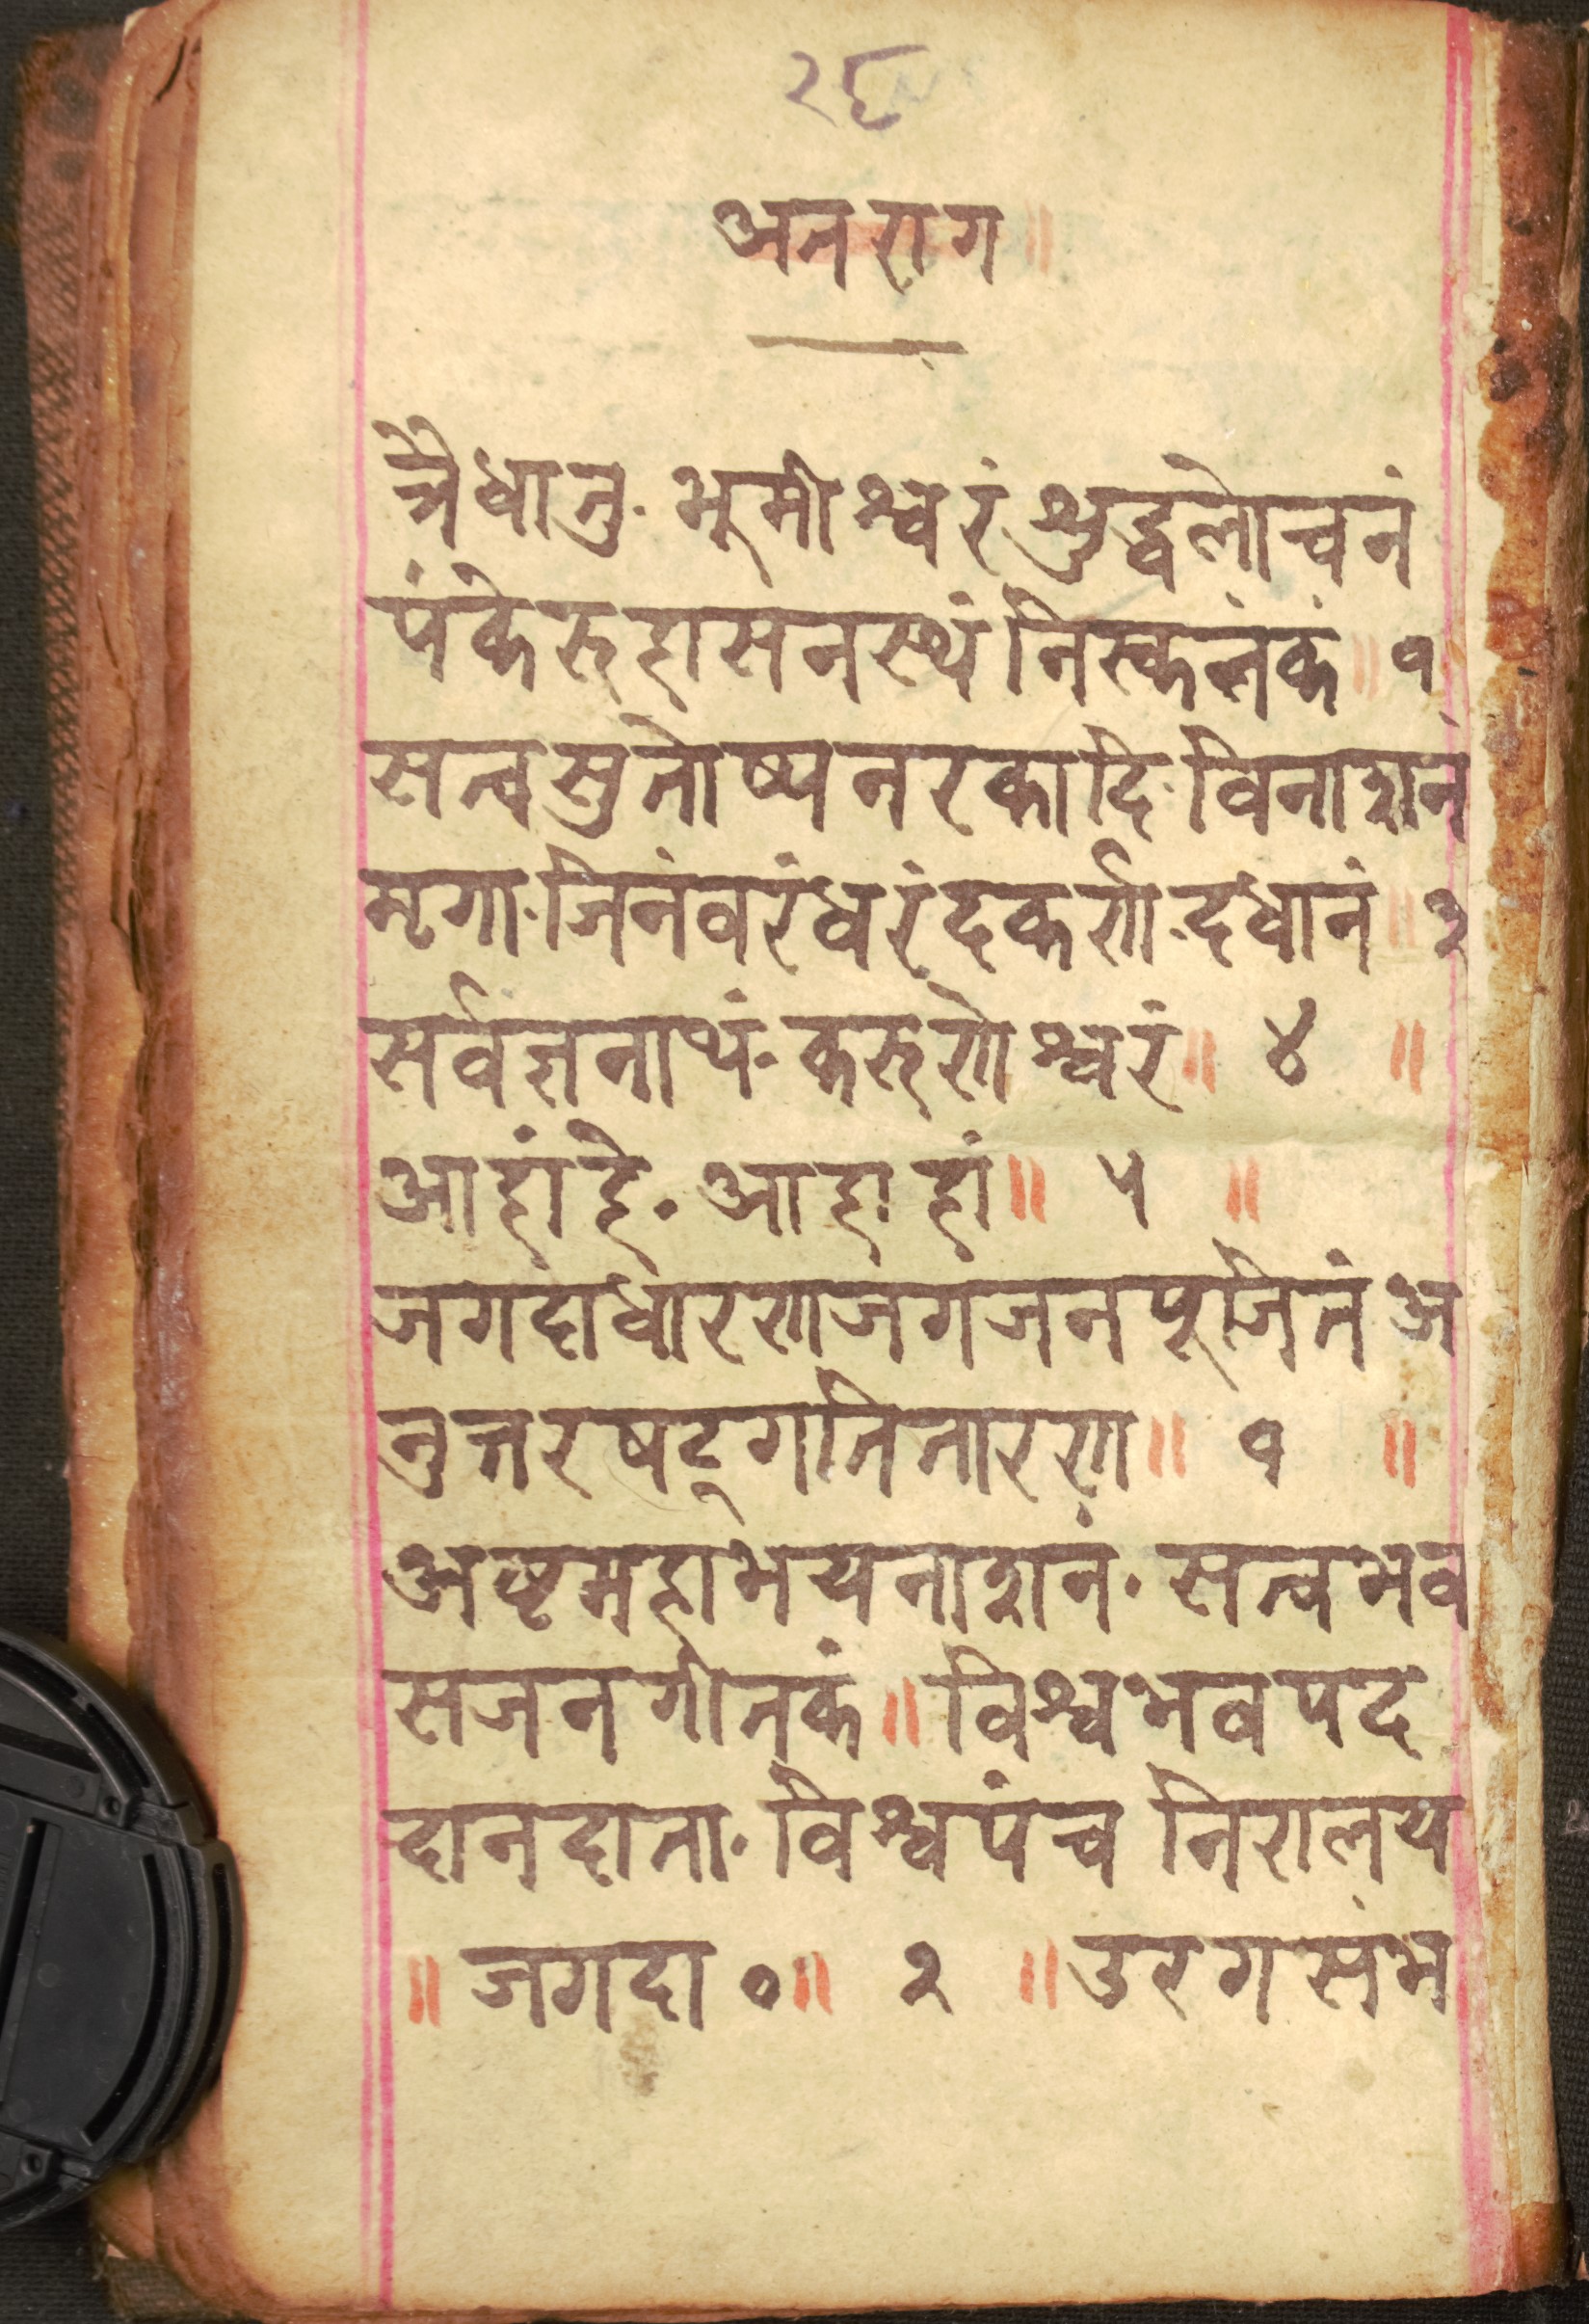 २६
अनराग॥
त्रैधातु. भूमीश्वरं श्रुद्धलोचनं
पंकेरुहासनस्थं निस्कलंकं॥ १
सत्वसुतोष्यनरकादि. विनाशनं
मृगा. जिनंवरंधरंदकर्णा. दधानं॥ २
सर्वज्ञनाथं. करुणेश्वरं॥ ४ ॥
आहांहे. आहाहां॥ ५ ॥
जगदाधारणजगंजनपूजितं अ
नुत्तरषट्गतितारण॥ १ ॥
अष्टमहाभयनाशनं. सत्वभव
सजनगीतकं॥ विश्वभवपद
दानदाता. विश्वपंच निरालय
॥ जगदा ०॥ २ ॥ उरगसंभ